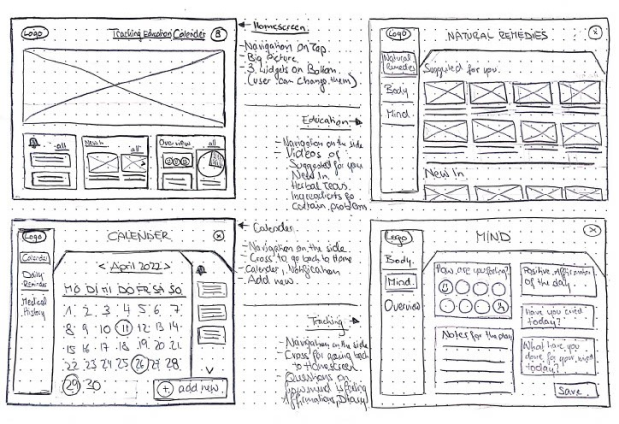 Logo
Tracking Education Calender
all
New In
all
Overview
all
← Homescreen
- Navigation on Top
- Big Picture
- 3 Widgets on Bottom
(user can change them)
Education →
- Navigation on the side
- Videos of
Suggested for you
New In
Herbal Teas
Ingredients for
certain problems
Logo
NATURAL REMEDIES
x
Natural
Remedies
Body
Mind
Suggested for you
New In
Logo
CALENDER
x
Calender
Daily
Reminder
Medical
History
< April 2022 >
MO DI MI DO FR SA SO
1 2 3 4 5 6 7
8 9 10 11 12 13 14
15 16 17 18 19 20 21
22 23 24 25 26 27 28
29 30
+ add new
← Calender
- Navigation on the side
- Cross to go back to Home
- Calender, Notification
- Add new
Tracking →
- Navigation on the side
- Cross for going back
to Homescreen
Questions on
Affirmations, Diary
Logo
MIND
x
Body
Mind
Overview
How are you feeling?
Notes for the day
Positive Affirmation
of the day
Have you cried
today?
What have you
done for your mind
today?
Save